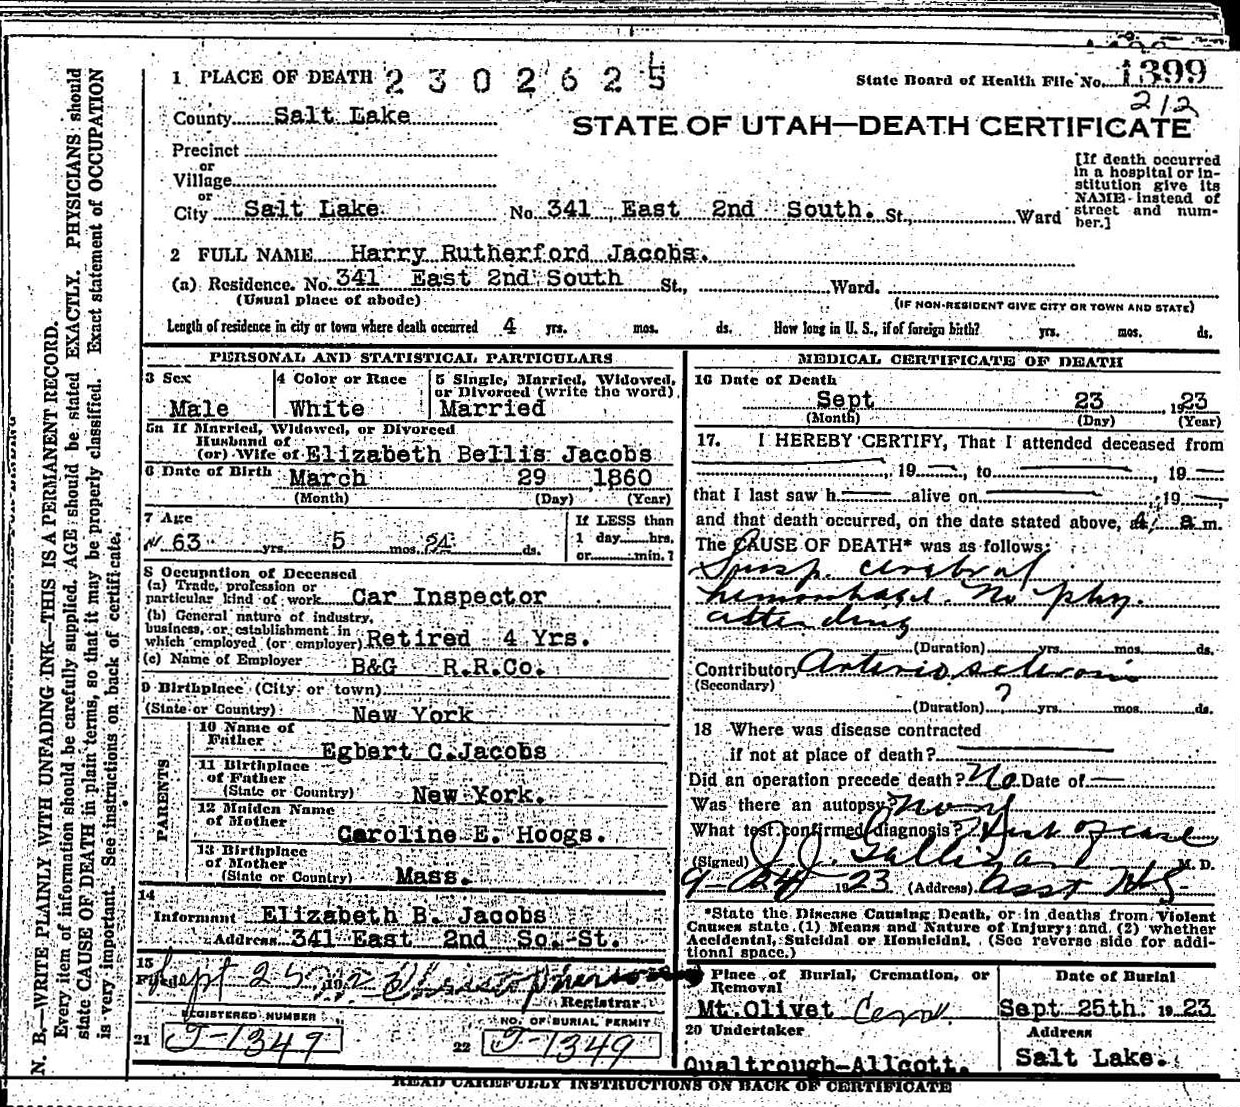 1 PLACE OF DEATH 2 3 0 2 6 2 5
State Board of Health File No. 1399
212
County Salt Lake
STATE OF UTAH—DEATH CERTIFICATE
Precinct
or
Village
or
City Salt Lake No. 341 East 2nd South. St., Ward
[If death occurred
in a hospital or in-
stitution give its
NAME instead of
street and num-
ber.]
2 FULL NAME Harry Rutherford Jacobs.
(a) Residence. No. 341 East 2nd South St., Ward.
(Usual place of abode)
(IF NON-RESIDENT GIVE CITY OR TOWN AND STATE)
Length of residence in city or town where death occurred 4 yrs. mos. ds. How long in U. S., if of foreign birth? yrs. mos. ds.
PERSONAL AND STATISTICAL PARTICULARS
3 Sex
Male
4 Color or Race
White
5 Single, Married, Widowed,
or Divorced (write the word)
Married
5a If Married, Widowed, or Divorced
Husband of
(or) Wife of Elizabeth Bellis Jacobs
6 Date of Birth March 29 1860
(Month) (Day) (Year)
7 Age
63 yrs. 5 mos. 24 ds.
If LESS than
1 day hrs.
or min.?
8 Occupation of Deceased
(a) Trade, profession or
particular kind of work Car Inspector
(b) General nature of industry,
business, or establishment in
which employed (or employer) Retired 4 Yrs.
(c) Name of Employer B&G R.R.Co.
9 Birthplace (City or town)
(State or Country) New York
PARENTS
10 Name of
Father Egbert C.Jacobs
11 Birthplace
of Father
(State or Country) New York.
12 Maiden Name
of Mother
Caroline E. Hoogs.
13 Birthplace
of Mother
(State or Country) Mass.
14
Informant Elizabeth B. Jacobs
Address 341 East 2nd So. St.
15
Filed Sept 25 19
Registrar
REGISTERED NUMBER
21 J-1349
NO. OF BURIAL PERMIT
22 J-1349
MEDICAL CERTIFICATE OF DEATH
16 Date of Death
Sept 23 1923
(Month) (Day) (Year)
17. I HEREBY CERTIFY, That I attended deceased from
, 19 , to , 19
that I last saw h alive on , 19
and that death occurred, on the date stated above, at a m.
The CAUSE OF DEATH* was as follows:
Susp. cerebral
hemorrhage. No phy.
attending
(Duration) yrs. mos. ds.
Contributory Arterio sclerosis
(Secondary)
(Duration) ? yrs. mos. ds.
18 Where was disease contracted
if not at place of death?
Did an operation precede death? No Date of —
Was there an autopsy?
What test confirmed diagnosis? Hist of case
(Signed) J. J. Galligan M. D.
9-24 1923 (Address) Asst
*State the Disease Causing Death, or in deaths from Violent
Causes state (1) Means and Nature of Injury; and (2) whether
Accidental, Suicidal or Homicidal. (See reverse side for addi-
tional space.)
Place of Burial, Cremation, or
Removal
Mt.Olivet Cem.
Date of Burial
Sept 25th. 1923
20 Undertaker
Qualtrough-Allcott.
Address
Salt Lake.
READ CAREFULLY INSTRUCTIONS ON BACK OF CERTIFICATE
N. B.—WRITE PLAINLY WITH UNFADING INK—THIS IS A PERMANENT RECORD.
Every item of information should be carefully supplied. AGE should be stated EXACTLY. PHYSICIANS should
state CAUSE OF DEATH in plain terms, so that it may be properly classified. Exact statement of OCCUPATION
is very important. See instructions on back of certificate.